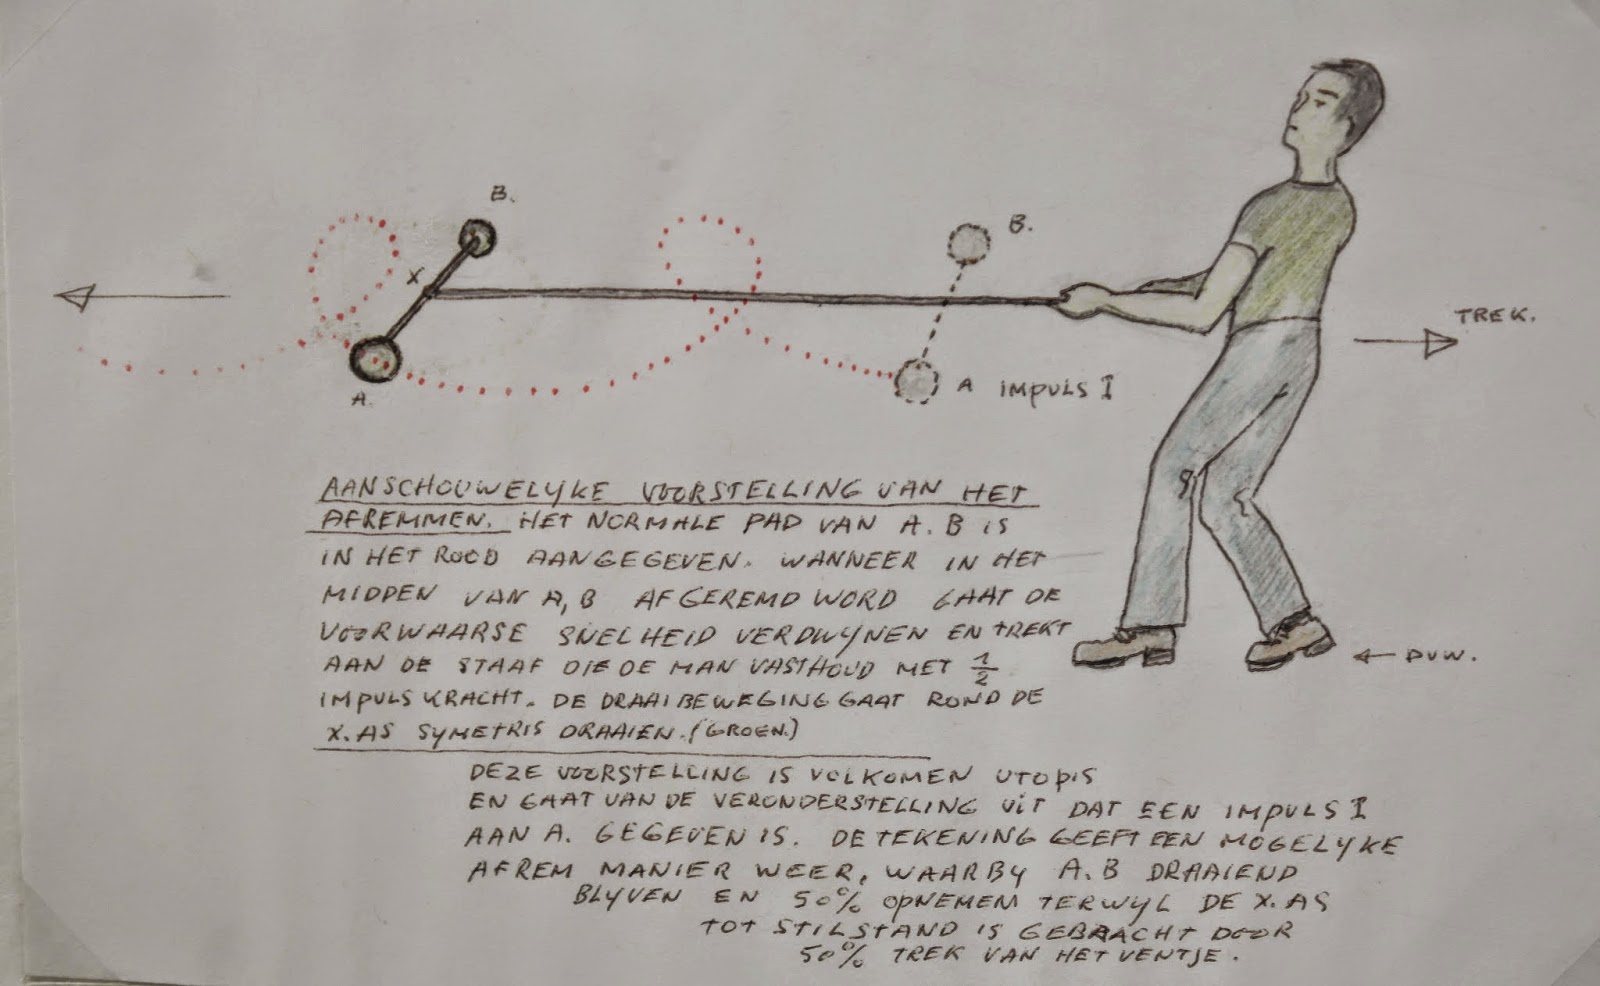 B.
X
A.
B.
A IMPULS I
TREK.
DUW.
AANSCHOUWELYKE VOORSTELLING VAN HET
AFREMMEN. HET NORMALE PAD VAN A.B IS
IN HET ROOD AANGEGEVEN. WANNEER IN HET
MIDDEN VAN A,B AFGEREMD WORD GAAT DE
VOORWAARSE SNELHEID VERDWYNEN EN TREKT
AAN DE STAAF DIE DE MAN VASTHOUD MET 1/2
IMPULS KRACHT. DE DRAAIBEWEGING GAAT ROND DE
X.AS SYMETRIS DRAAIEN. (GROEN.)
DEZE VOORSTELLING IS VOLKOMEN UTOPIS
EN GAAT VAN DE VERONDERSTELLING UIT DAT EEN IMPULS I
AAN A. GEGEVEN IS. DE TEKENING GEEFT EEN MOGELYKE
AFREM MANIER WEER, WAARBY A.B DRAAIEND
BLYVEN EN 50% OPNEMEM TERWYL DE X.AS
TOT STILSTAND IS GEBRACHT DOOR
50% TREK VAN HET VENTJE.